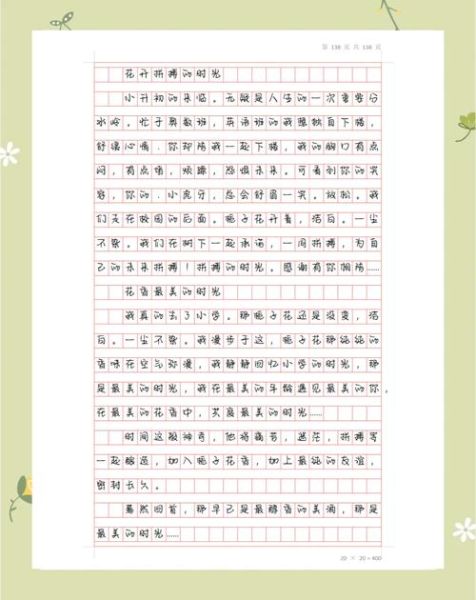 第 138 页 共 138 页
花开拼搏的时光
小升初的来临。无疑是人生的一次重要分
水岭。忙于奥数班,英语班的我独自下楼,
舒缓心情,你却陪我一起下楼,我的胸口有点
闷,有点晴,烦躁,恐惧未来。可看到你的笑
容,你的,小虎牙,总会舒眉一笑。放松。我
们走在校园的后面。栀子花开着,洁白。一尘
不染。我们在树下一起承诺,一同拼搏,为自
己的未来拼搏!拼搏的时光。感谢有你相陪……
花香最美的时光
我真的去了小学。那栀子花还是没变,洁
白。一尘不染。我漫步于这,栀子花那纯纯的
香味在空气弥漫,我静静回忆小学的时光,那
是最美的时光,我在最美的年龄遇见最美的你,
在最美的花香中,共度最美的时光……
时间这般神奇,他将痛苦,迷茫,拼搏等
一起酿造,加入栀子花香,加上最纯的友谊,
密封长久。
蓦然回首,那早已是最醇香的美酒,那是
最美的时光……
20 × 20 = 400